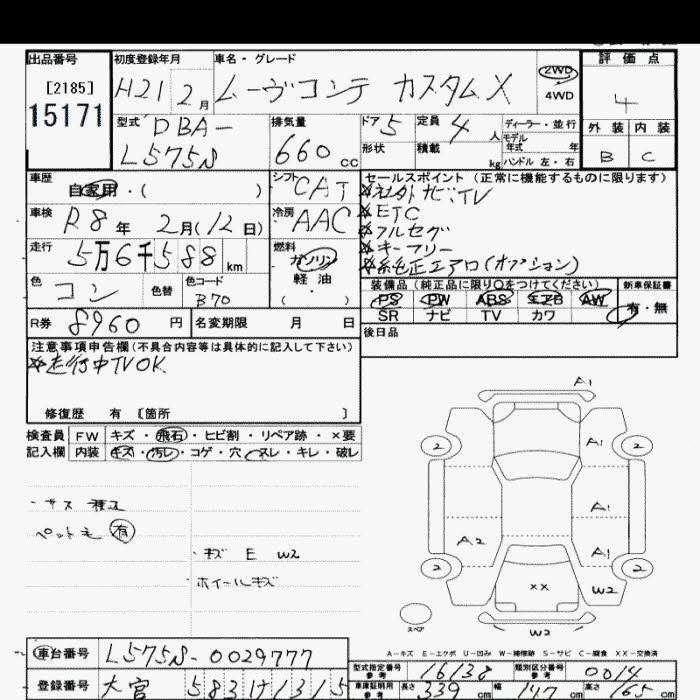 出品番号
[2185]
15171
初度登録年月
H21 2月
車名・グレード
ムーヴコンテ カスタムX
2WD
4WD
評価点
4
外装 内装
B C
型式
DBA-
L575S
排気量
660 cc
ドア 5
定員 4人
形状
積載 kg
ディーラー・並行
モデル
年式 年
ハンドル 左・右
車歴
自家用・( )
シフト
CAT
車検
R8年 2月(12日)
冷房
AAC
走行
5万6千588km
燃料
ガソリン
軽油
・( )
色
コン
色替
色コード
B70
R券 8960円
名変期限 月 日
セールスポイント(正常に機能するものに限ります)
※社外ナビ、TV
※ETC
※フルセグ
※キーフリー
※純正エアロ(オプション)
装備品(純正品に限り○をつけてください)
PS PW ABS エアB AW
SR ナビ TV カワ
新車保証書
有・無
後日品
注意事項申告欄(不具合内容等は具体的に記入して下さい)
※走行中TVOK
修復歴 有 〔箇所 〕
検査員
記入欄
FW キズ・飛石・ヒビ割・リペア跡・×要
内装 キズ・汚レ・コゲ・穴・ヌレ・キレ・破レ
ペット毛 有
・キズ E W2
ホイールキズ
A1
2 A1 2
A1
A2
A1
2 2
×× W2
スペア
W2
A-キズ E-エクボ U-凹み W-補修跡 S-サビ C-腐食 XX-交換済
車台番号
L575S-0029777
登録番号
大宮 583 け 1315
型式指定番号
参考
16138
類別区分番号
参考
0014
車庫証明用
参考
長さ 339cm
幅 147cm
高さ 165cm